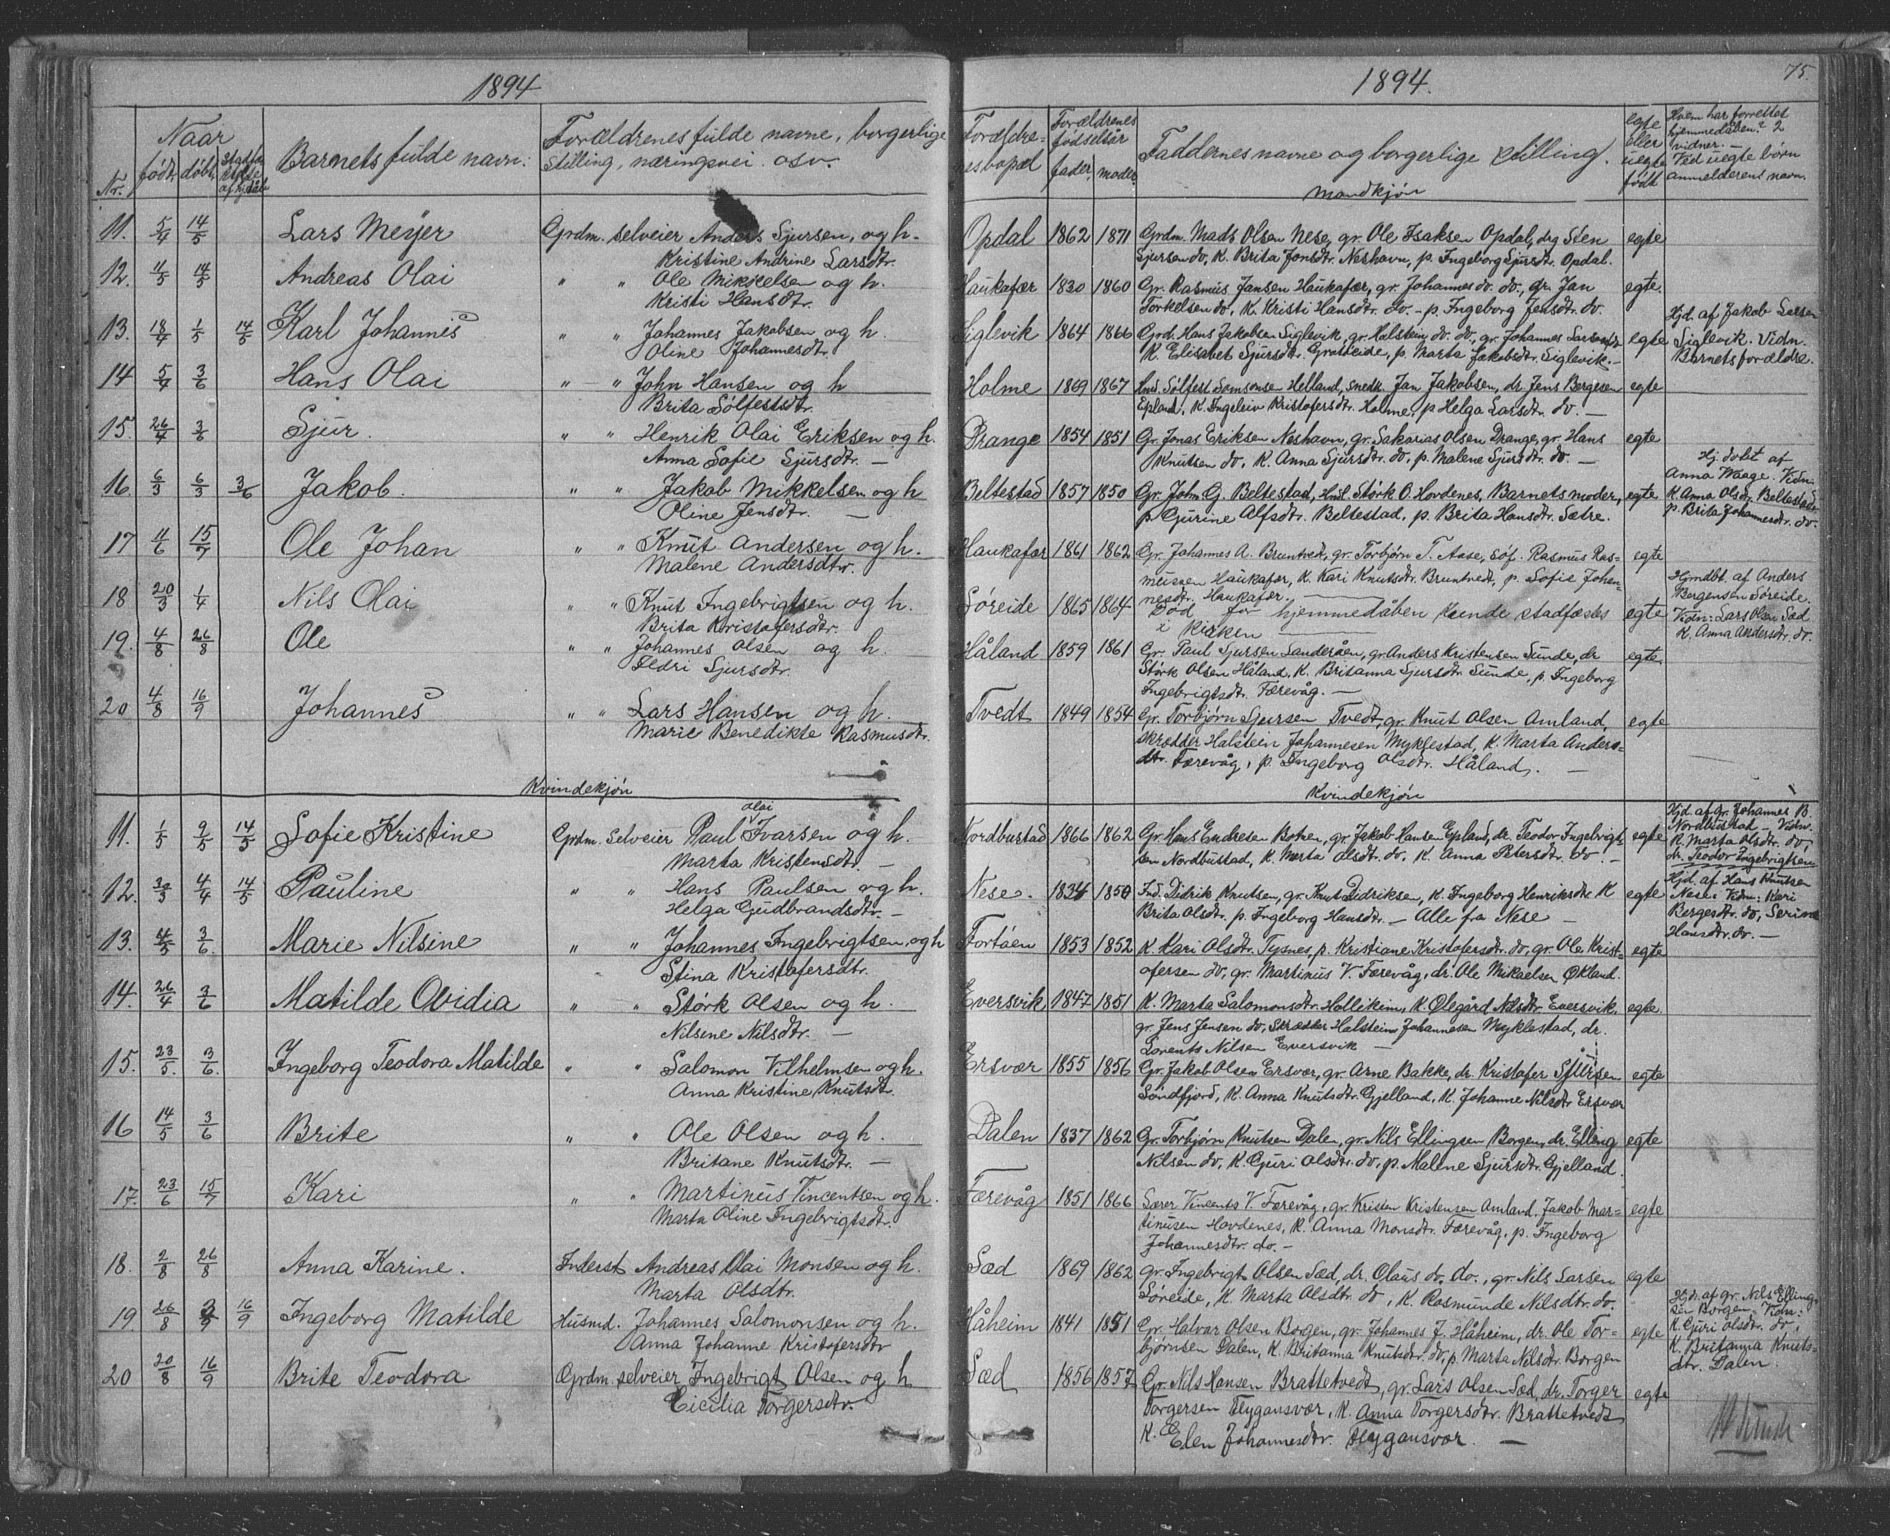 1894
1894.
75.
Nr.
Naar
født.
døbt.
Barnets fulde navn:
Forældrenes fulde navne, borgerlige
stilling, næringsvei osv.
Forældrenes
fødselsår
fader.
moder.
Faddernes navne og borgerlige stilling.
egte
eller
uegte
født
Hvem har forrettet
hjemmedåben? 2
vidner. —
Ved uegte børn
anmelderens navn.
Mandkjøn
11. 5/4 14/5 Lars Meyer Grdm. selveier Anders Sjursen, og h. Opdal 1862 1871 Grdm. Mads Olsen Nese, gr. Ole Isaksen Opdal, drg Sten egte
Kristine Andrine Larsdtr. Sjursen do, K. Brita Jonsdtr. Neshavn, p. Ingeborg Sjursdtr. Opdal.
12. 14/5 Andreas Olai " " Ole Mikkelsen og h. Haukafær 1830 1860 Gr. Rasmus Jansen Haukafær, gr. Johannes do. do., gr. Jan egte.
Kristi Hansdtr. Torkelsen do, K. Kristi Hansdtr. do. – p. Ingeborg Jensdtr. do.
13. 18/4 1/5 14/5 Karl Johannes " " Johannes Jakobsen og h. Siglevik 1864 1866 Grd. Hans Jakobsen Siglevik, gr. Halstein do. do., gr. Johannes Larsen egte Hjd. af Jakob Larsen
Oline Johannesdtr. K. Elisabet Sjursdtr. Grutleide, p. Marta Jakobsdtr. Siglevik. – Siglevik. Vidn.
Barnets forældre.
14 5/4 3/6 Hans Olai " – " John Hansen og h Holme 1869 1867 Sølfest Samsonsen Helland, smedk. Jan Jakobsen, dr. Jens Bergesen egte
Brita Sølfestsdtr. Epland, K. Ingeleiv Kristofersdtr. Holme, p Helga Larsdtr. do. —
15. 26/4 3/6 Sjur. " " Henrik Olai Eriksen og h. Drange 1854 1851 Gr. Jonas Eriksen Neshavn, gr. Sakarias Olsen Drange, gr. Hans egte
Anna Sofie Sjursdtr. — Knutsen do, K. Anna Sjursdtr. do, p. Malene Sjursdtr. do. —
16. 6/3 6/3 3/6 Jakob. " " Jakob Mikkelsen og h Beltestad 1857 1850 Gr. John G. Beltestad, Størk O. Hovdenes, Barnets moder, egte Hj. døbt af
Oline Jensdtr. — p Gurine Alfsdtr. Beltestad, p. Brita Hansdtr. Sætre. Anna Waage. Vidn.
K. Anna Olsdtr. Beltestad
p. Brita Johannesdtr. do.
17 4/6 15/7 Ole Johan " " Knut Andersen og h. Haukafær 1861 1862 Gr. Johannes A. Bruntvedt, gr. Torbjørn T. Aase, Rasmus Ras- egte
Malene Andersdtr. mussen Haukafær, K. Kari Knutsdtr. Bruntvedt, p. Sofie Johan-
nesdtr. Haukafær. —
18 20/3 1/4 Nils Olai " " Knut Ingebrigtsen og h. Søreide 1865 1864 Død før hjemmedåben kunde stadfæstes egte Hjmdbt. af Anders
Brita Kristofersdtr. i kirken — Bergensen Søreide.
Vidn: Lars Olsen Sæd
K. Anna Andersdtr. do.
19. 4/8 26/8 Ole " " Johannes Olsen og h. Håland 1859 1861 Gr. Paul Sjursen Sanderåen, gr Anders Kristensen Sunde, dr egte.
Eldri Sjursdtr. Størk Olsen Håland, K. Britanna Sjursdtr Sunde, p. Ingeborg
Ingebrigtsdtr. Færevåg. —
20 4/8 16/9 Johannes " " Lars Hansen og h. Tvedt 1849 1854 Gr. Torbjørn Sjursen Tvedt, gr. Knut Olsen Amland, egte
Marie Benedikte Rasmusdtr. skrædder Halstein Johannesen Myklestad, K. Marta Anders=
dtr. Færevåg, p. Ingeborg Olsdtr. Håland. —
Kvindekjøn
Kvindekjøn
11. 1/5 9/5 14/5 Sofie Kristine Grdm. selveier Paul Olai Ivarsen og h. Nordbustad 1866 1862 Gr. Hans Endresen Botnen, gr. Jakob Hansen Epland, dr. Teodor Ingebrigt- egte Hjd. af gr Johannes B.
Marta Kristensdtr. — sen Nordbustad, K. Marta Olsdtr. do, K. Anna Petersdtr. do. — Nordbustad – Vidn.
K. Marta Olsdtr. do,
dr. Teodor Ingebrigtsen
12. 4/4 14/5 Pauline " " Hans Paulsen og h. Nese. 1834 1850 Ind. Didrik Knutsen, gr. Knut Didriksen, K. Ingeborg Henriksdtr. K egte Hjd. af Hans Knutsen
Helga Gudbrandsdtr. — Brita Olsdtr. p Ingeborg Hansdtr. – Alle fra Nese — Nese. Vidn: Kari
Bergesdtr. do, Serina
Hansdtr. do. —
13. 4/5 3/6 Marie Nilsine " " Johannes Ingebrigtsen og h Fortøen 1853 1852 K. Kari Olsdtr. Tysnes, p. Kristiane Kristofersdtr. do, gr. Ole Krist- egte
Stina Kristofersdtr. ofersen do, gr. Martinus V. Færevåg, dr. Ole Mikaelsen Økland.
14. 26/4 3/6 Matilde Ovidia " " Størk Olsen og h. Eversvik 1847 1851 K. Marta Salomonsdtr. K. Ølegård Nilsdtr. Eversvik, egte
Nilsene Nilsdtr. — gr. Jens Jensen do, Skrædder Halstein Johannesen Myklestad, dr.
Lorents Nilsen Eversvik —
15. 23/5 3/6 Ingeborg Teodora Matilde " " Salomon Vilhelmsen og h. Ersvær 1855 1856 Gr. Jakob Olsen Ersvær, gr. Arne Bakke, dr. Kristofer Sjursen egte
Anna Kristine Knutsdtr. Søndfjord, K. Anna Knutsdtr. Gjelland, K. Johanne Nilsdtr Ersvær
16 14/5 3/6 Brite " " Ole Olsen og h. Dalen 1837 1862 Gr. Torbjørn Knutsen Dalen, gr. Nils Ellingsen Borgen, dr. Elling egte
Britane Knutsdtr. — Nilsen do, K. Guri Olsdtr. do, p. Malene Sjursdtr. Gjelland.
17. 23/6 15/7 Kari " " Martinus Vincentsen og h. Færevåg 1851 1866 Vincents V. Færevåg, gr. Kristen Kristensen Amland, Jakob Mar- egte
Marta Oline Ingebrigtsdtr. tinusen Hovdenes, K. Anna Monsdtr. Færevåg, p. Ingeborg
Johannesdtr. do. —
18. 2/8 26/8 Anna Karine. Inderst Andreas Olai Monsen og h. Sæd 1869 1862 gr. Ingebrigt Olsen Sæd, dr. Olaus do. do., gr. Nils Larsen egte
Marta Olsdtr. Søreide, K. Marta Olsdtr. do, K. Rasmunde Nilsdtr. do.
19. 26/8 16/9 Ingeborg Matilde Husmd. Johannes Salomonsen og h. Håheim 1841 1851 Gr. Halvar Olsen Bogen, gr. Johannes J. Håheim, dr. Ole Tor- egte Hjd. af gr. Nils Elling-
Anna Johanne Kristofersdtr bjørnsen Dalen, K. Britanna Knutsdtr. do, p. Marta Nilsdtr. Borgen sen Borgen. Vidn:
K. Guri Olsdtr. do,
K. Britanna Knuts-
dtr. Dalen.
20 20/8 16/9 Brite Teodora Grdm. selveier Ingebrigt Olsen og h Sæd 1856 1857 Gr. Nils Hansen Brattetvedt, gr. Lars Olsen Sæd, dr. Torger egte
Cicilia Torgersdtr. Torgersen Flygansvær, K. Anna Torgersdtr. Brattetvedt
K. Elen Johannesdtr. Flygansvær. —